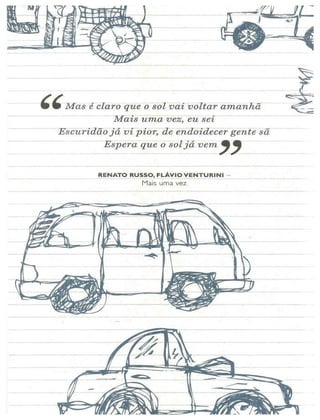 “Mas é claro que o sol vai voltar amanhã
Mais uma vez, eu sei
Escuridão já vi pior, de endoidecer gente sã
Espera que o sol já vem”
RENATO RUSSO, FLÁVIO VENTURINI –
Mais uma vez